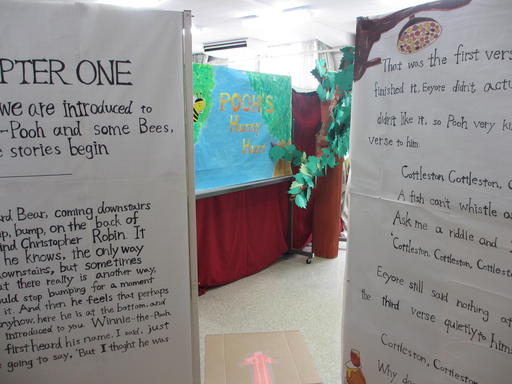 PTER ONE
we are introduced to
-Pooh and some Bees,
stories begin
Bear, coming downstairs
bump, on the back of
Christopher Robin. It
he knows, the only way
downstairs, but sometimes
there really is another way,
stop bumping for a moment
it. And then he feels that perhaps
here he is at the bottom, and
introduced to you. Winnie-the-Pooh
first heard his name, I said, just
going to say, 'But I thoght he was
POOH'S
Hunny
Hunt
That was the first vers
finished it, Eeyore didn't actu
didn't like it, so Pooh very kin
verse to him.
Cottleston, Cottleston, C
A fish can't whistle a
Ask me a riddle and
"Cottleston, Cottleston, Cottlesto
Eeyore still said nothing at
the third verse quietly to him
Cottleston, Cottleston,
Why do